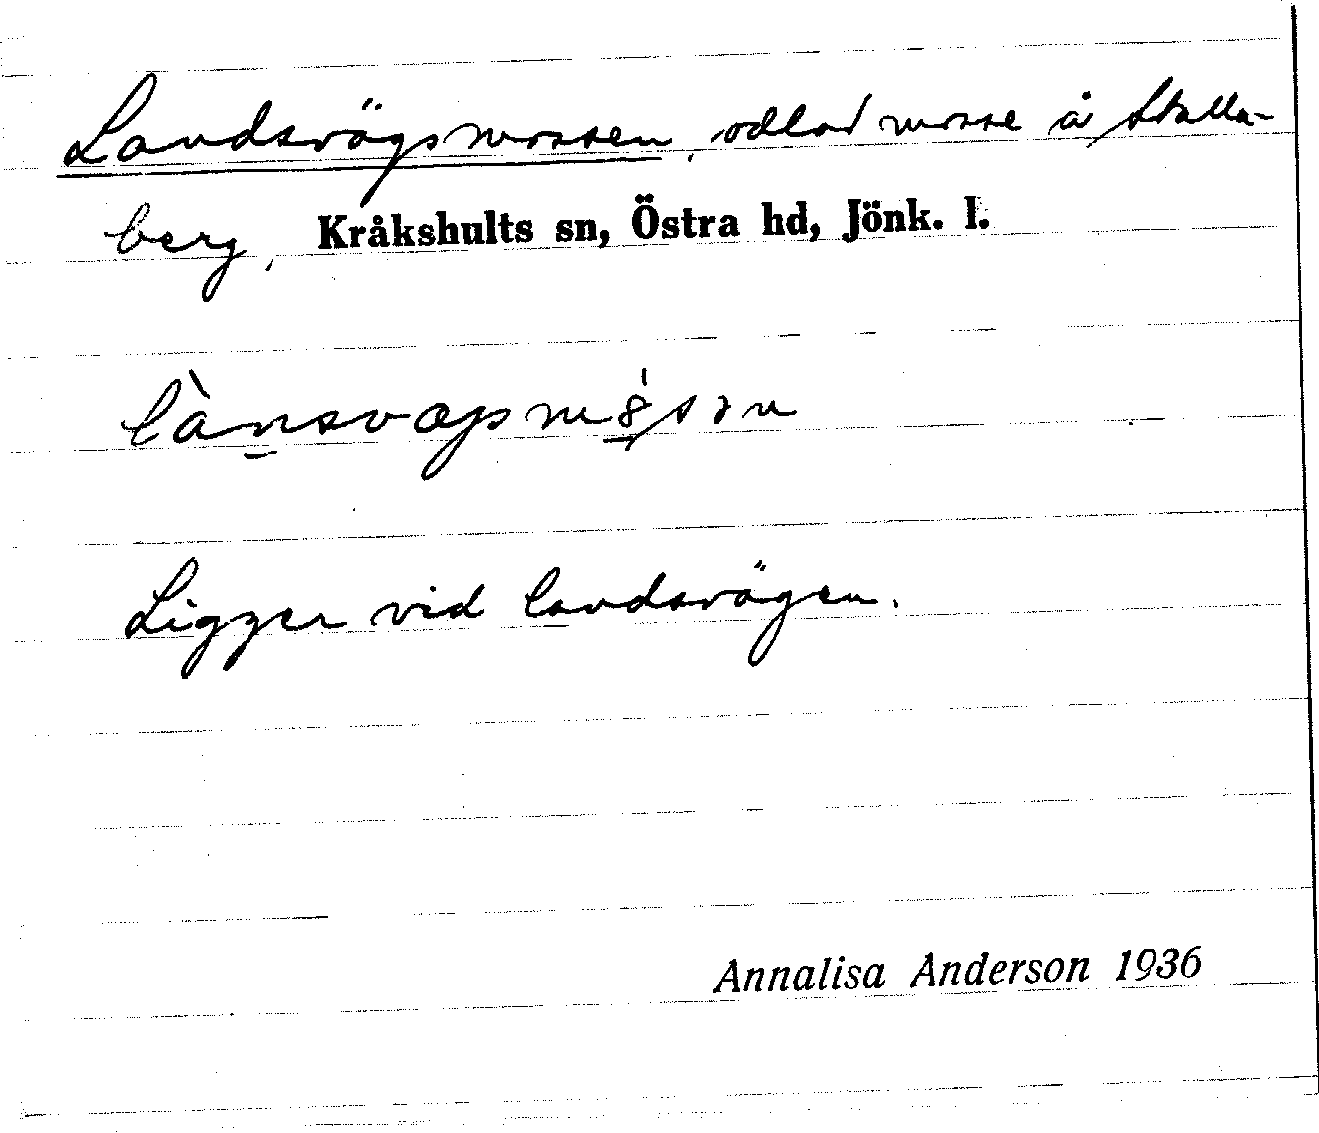 Landsvägsmossen, odlad mosse å Stalla-
berg, Kråkshults sn, Östra hd, Jönk. l.
Ligger vid landsvägen.
Annalisa Anderson 1936